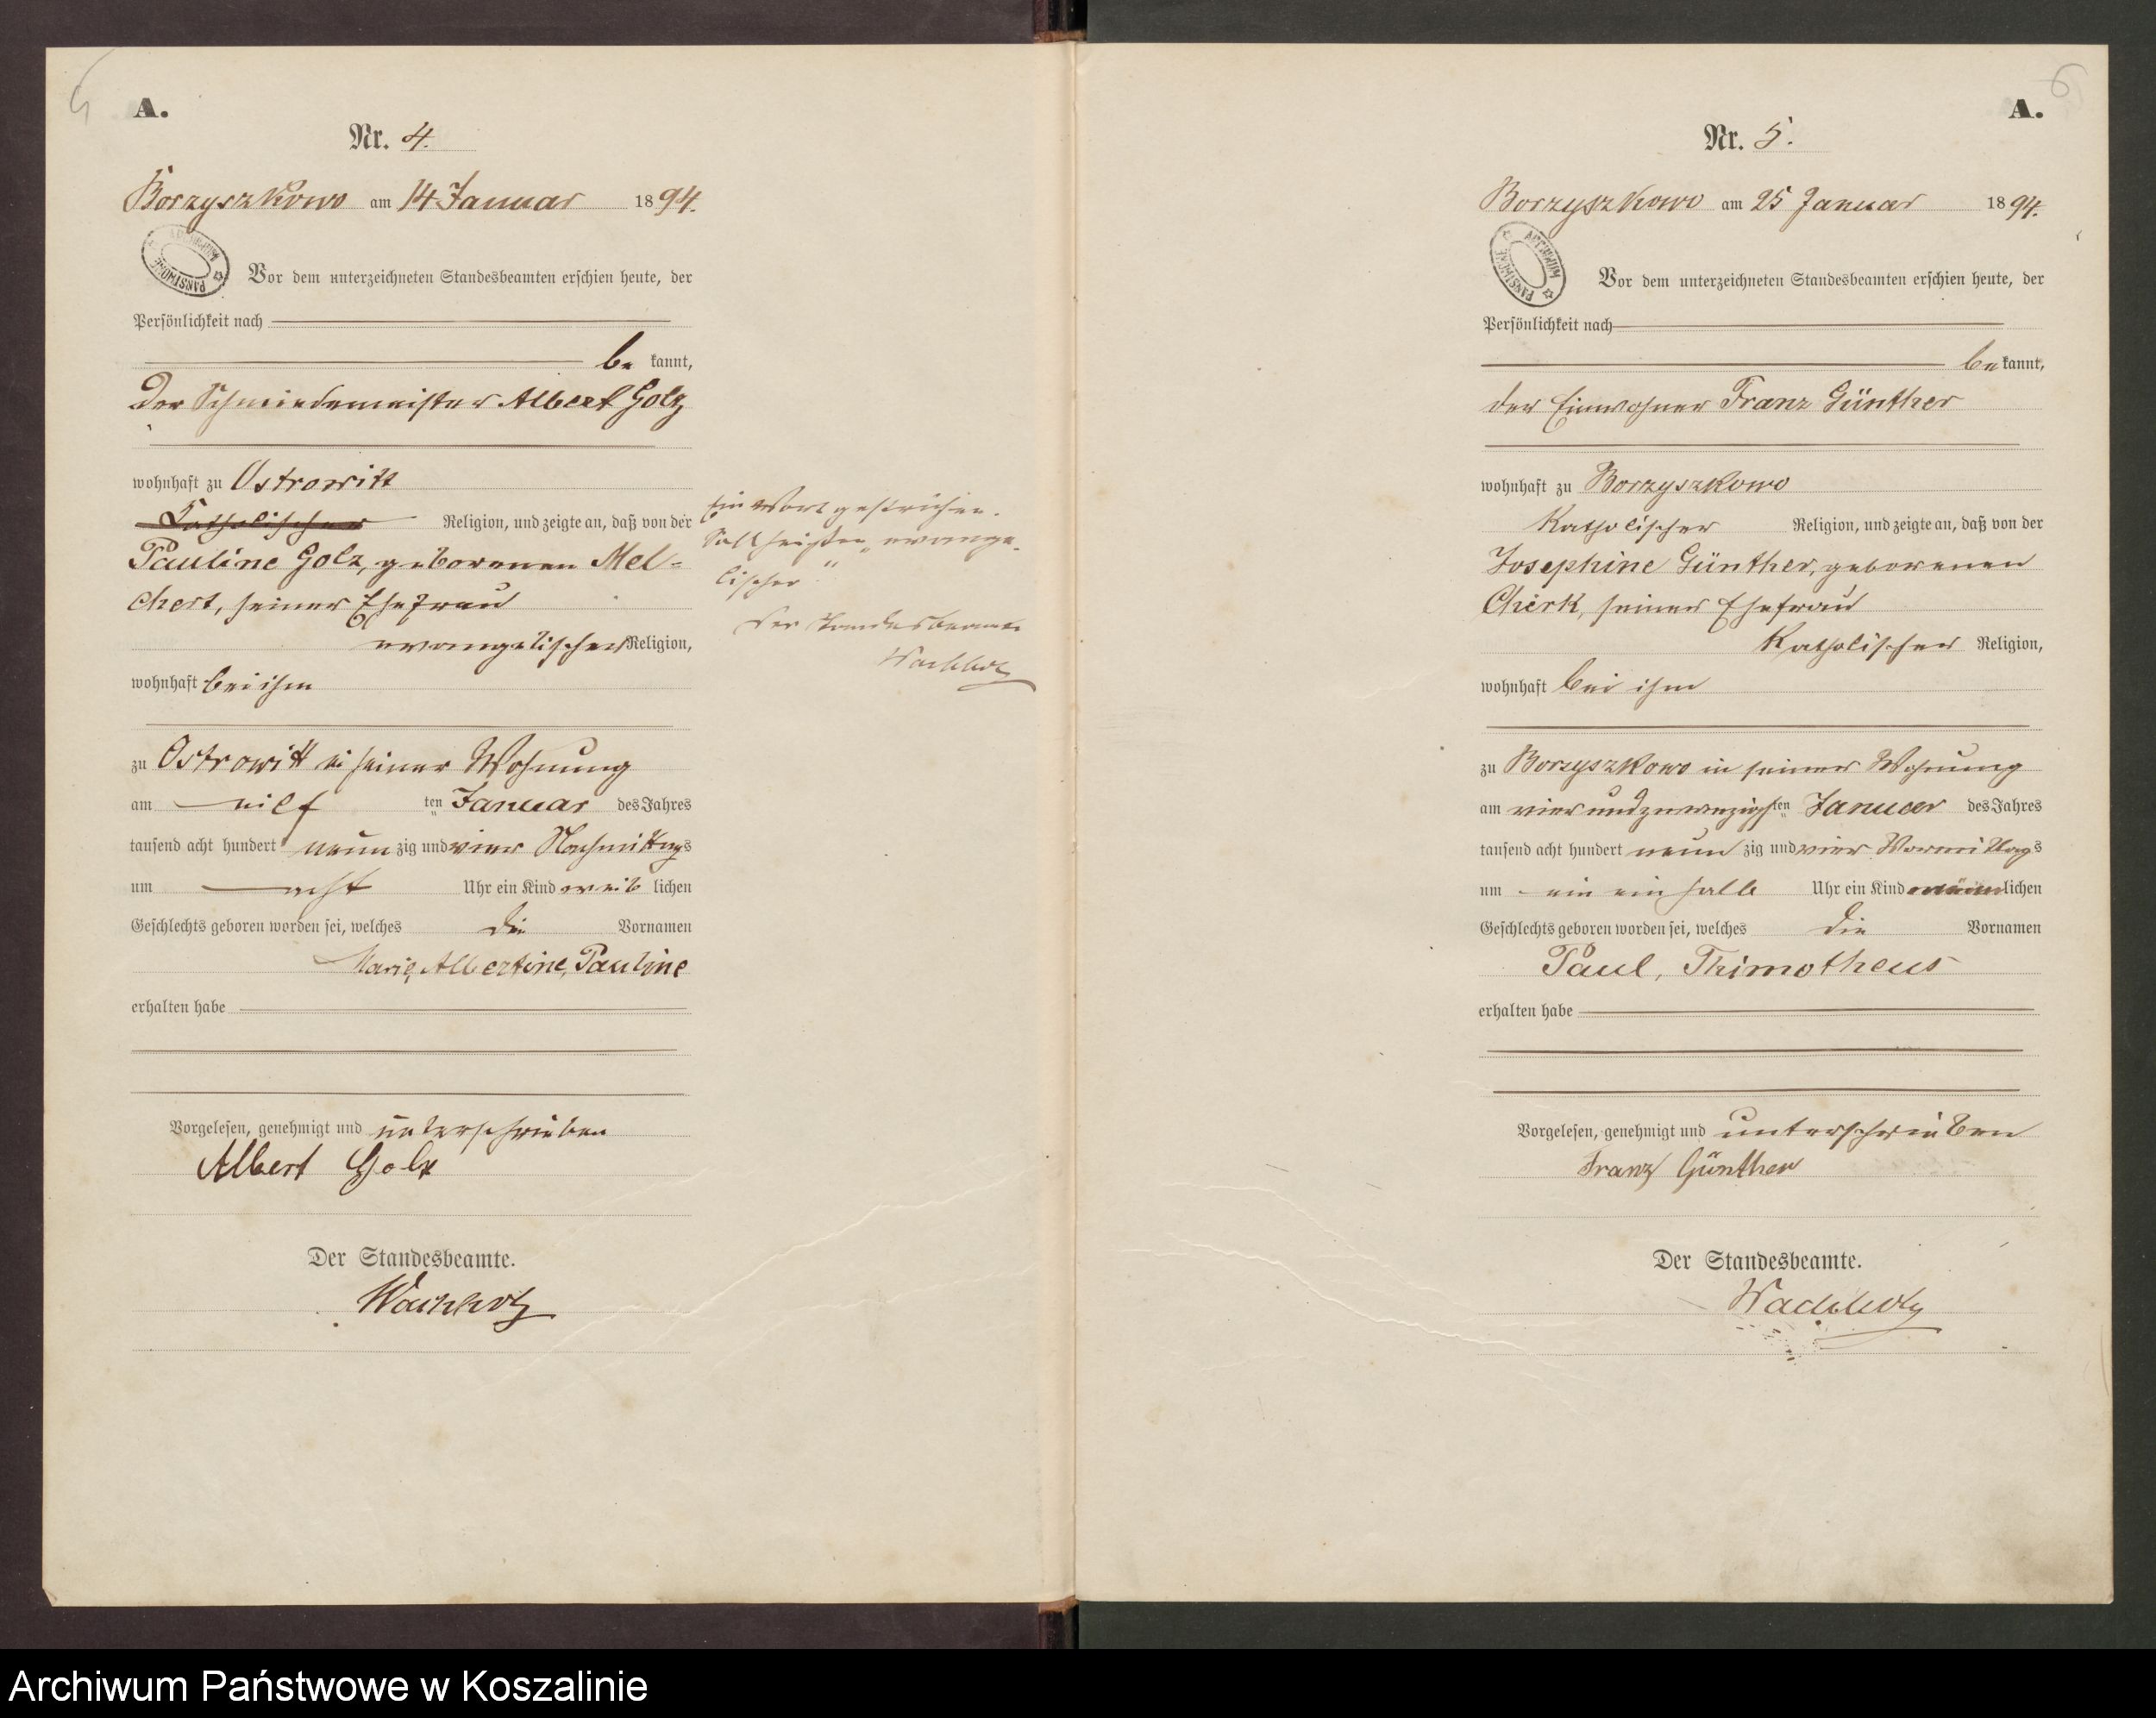 5
A.
Nr. 4.
Borzyszkowo am 14 Januar 1894.
ARCHIWUM PAŃSTWOWE
Vor dem unterzeichneten Standesbeamten erschien heute, der
Persönlichkeit nach
be kannt,
der Schmiedemeister Albert Golz
wohnhaft zu Ostrowitt
Katholischer Religion, und zeigte an, daß von der
Pauline Golz, geborenen Mel-
chert, seiner Ehefrau
evangelischer Religion,
wohnhaft bei ihm
zu Ostrowitt in seiner Wohnung
am eilf ten Januar des Jahres
tausend acht hundert neun zig und vier Nachmittags
um acht Uhr ein Kind weib lichen
Geschlechts geboren worden sei, welches die Vornamen
Marie, Albertine, Pauline
erhalten habe
Vorgelesen, genehmigt und unterschrieben
Albert Golz
Der Standesbeamte.
Wachholz
Ein Wort gestrichen.
Soll heißen „evange-
lischer“
Der Standesbeamte
Wachholz
6
A.
Nr. 5.
Borzyszkowo am 25 Januar 1894.
ARCHIWUM PAŃSTWOWE
Vor dem unterzeichneten Standesbeamten erschien heute, der
Persönlichkeit nach
be kannt,
der Einwohner Franz Günther
wohnhaft zu Borzyszkowo
Katholischer Religion, und zeigte an, daß von der
Josephine Günther, geborenen
Chirk, seiner Ehefrau
Katholischer Religion,
wohnhaft bei ihm
zu Borzyszkowo in seiner Wohnung
am vierundzwanzigsten Januar des Jahres
tausend acht hundert neun zig und vier Vormittags
um ein ein halb Uhr ein Kind männlichen
Geschlechts geboren worden sei, welches die Vornamen
Paul, Thimotheus
erhalten habe
Vorgelesen, genehmigt und unterschrieben
Franz Günther
Der Standesbeamte.
Wachholz
Archiwum Państwowe w Koszalinie